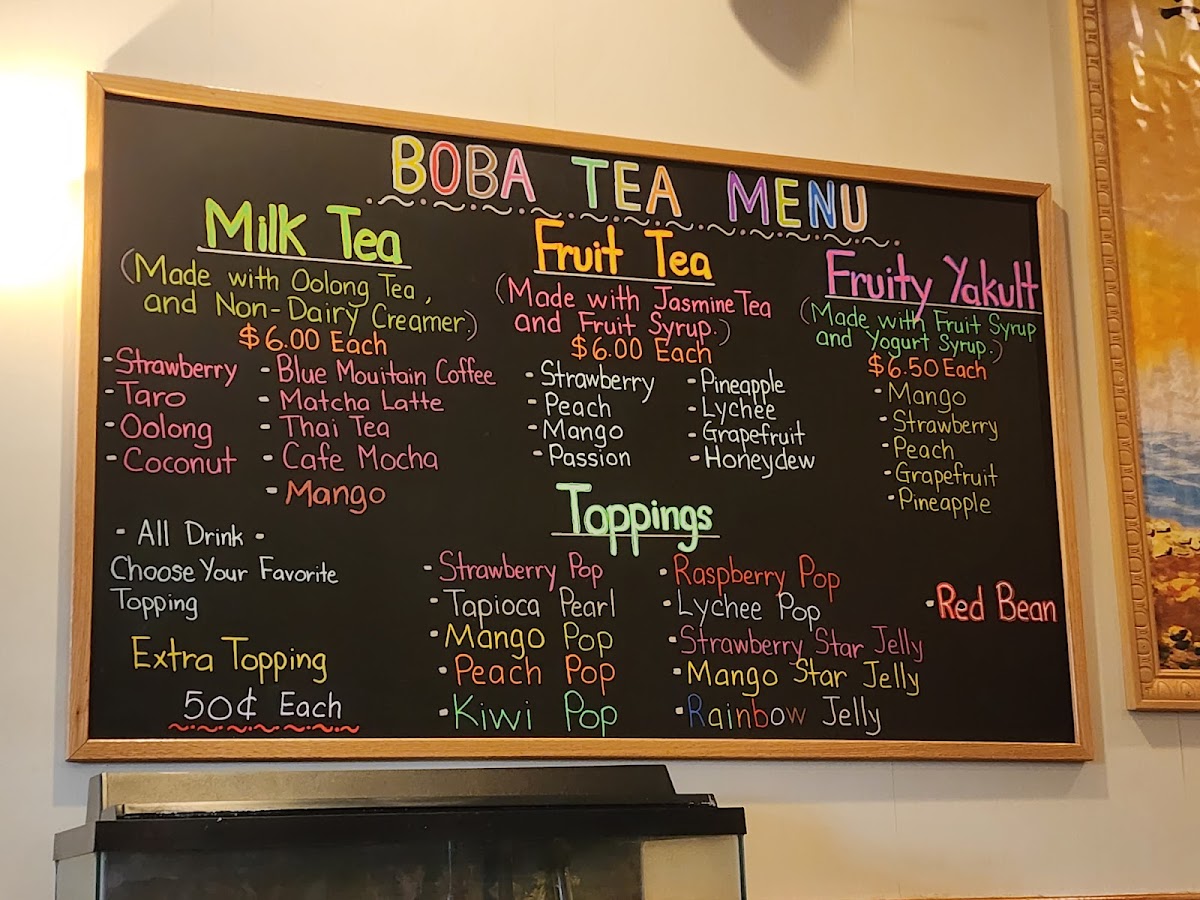 BOBA TEA MENU
Milk Tea
(Made with Oolong Tea,
and Non-Dairy Creamer.)
$6.00 Each
-Strawberry
-Taro
-Oolong
-Coconut
-Blue Mouitain Coffee
-Matcha Latte
-Thai Tea
-Cafe Mocha
-Mango
Fruit Tea
(Made with Jasmine Tea
and Fruit Syrup.)
$6.00 Each
-Strawberry
-Peach
-Mango
-Passion
-Pineapple
-Lychee
-Grapefruit
-Honeydew
Fruity Yakult
(Made with Fruit Syrup
and Yogurt Syrup.)
$6.50 Each
-Mango
-Strawberry
-Peach
-Grapefruit
-Pineapple
- All Drink -
Choose Your Favorite
Topping
Extra Topping
50¢ Each
Toppings
-Strawberry Pop
-Tapioca Pearl
-Mango Pop
-Peach Pop
-Kiwi Pop
-Raspberry Pop
-Lychee Pop
-Strawberry Star Jelly
-Mango Star Jelly
-Rainbow Jelly
-Red Bean